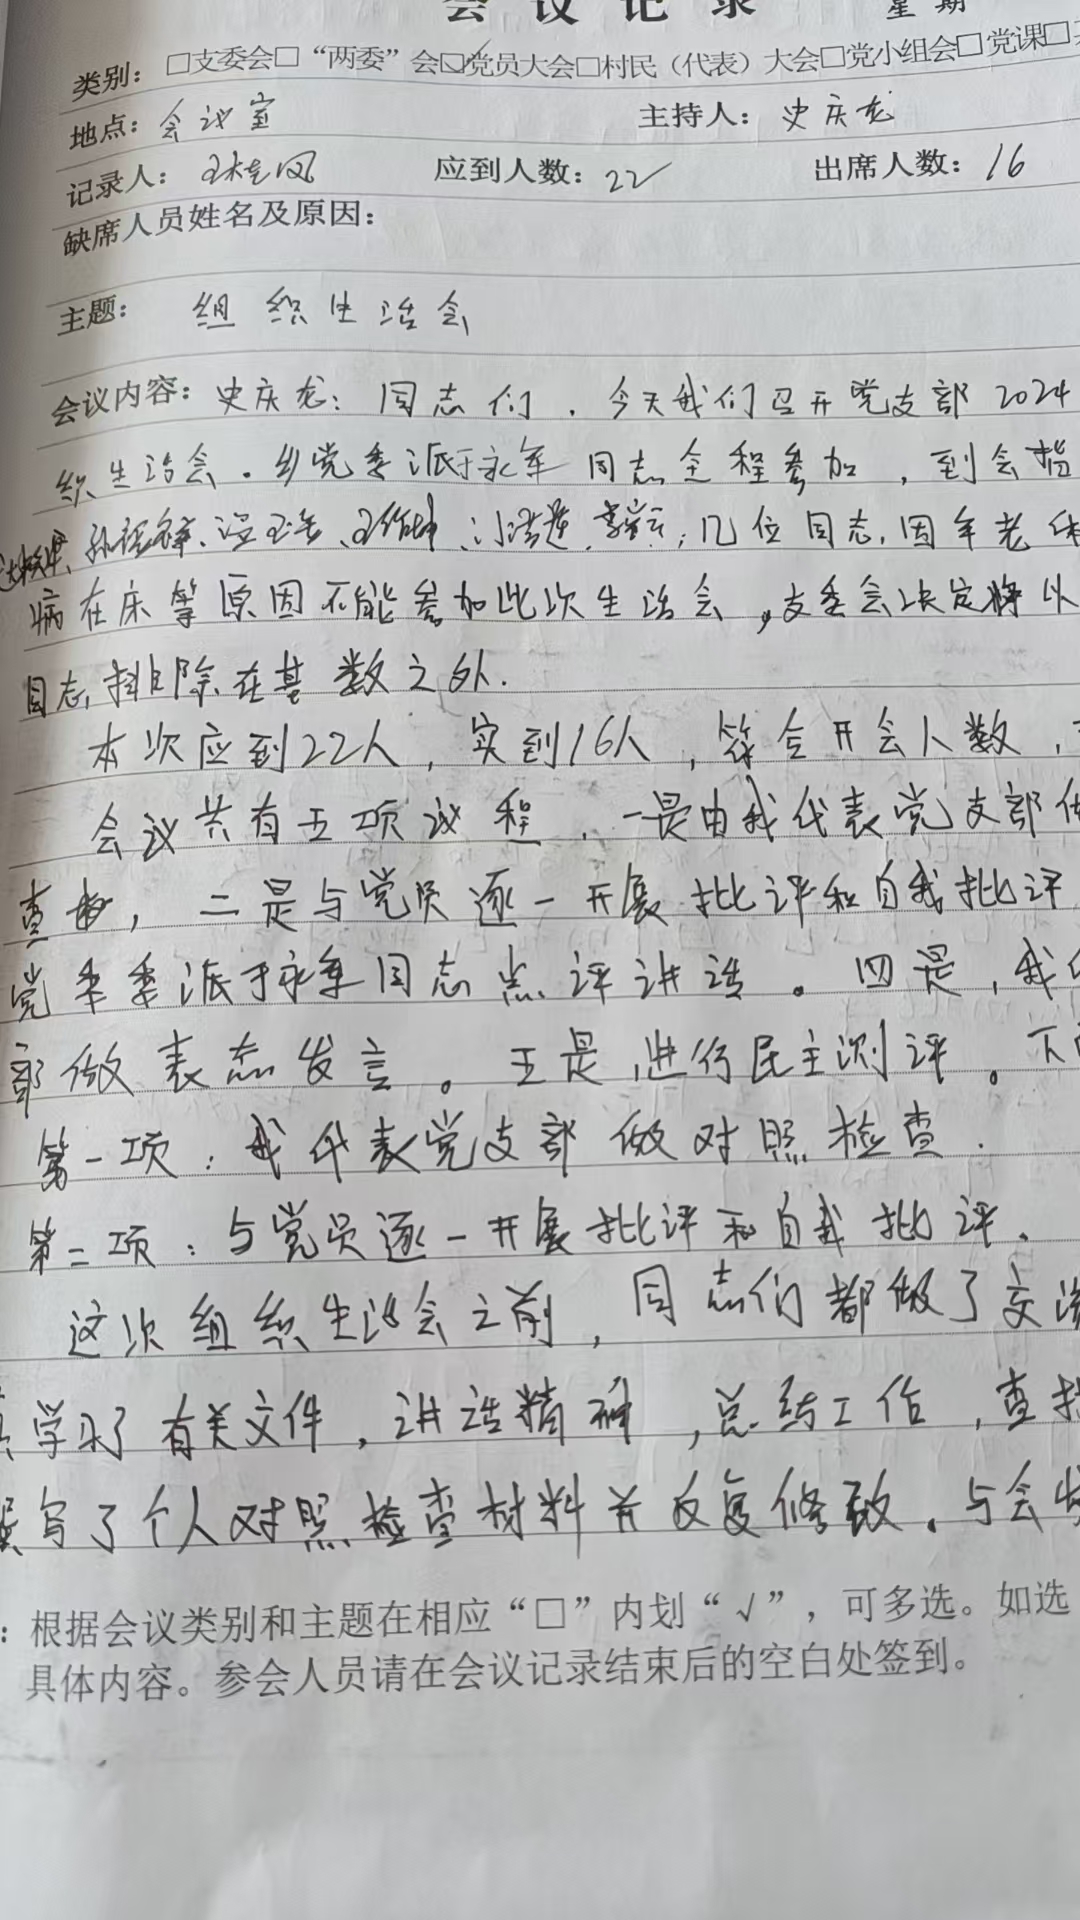 会议记录 星期
类别：□支委会□“两委”会☑党员大会□村民（代表）大会□党小组会□党课□
地点：会议室 主持人：史庆龙
记录人： 应到人数：22 出席人数：16
缺席人员姓名及原因：
主题： 组织生活会
会议内容：史庆龙：同志们，今天我们召开党支部2024
织生活会。乡党委派于永军同志全程参加，到会指
几位同志，因年老体
病在床等原因不能参加此次生活会，支委会决定将以
同志，排除在基数之外.
本次应到22人，实到16人，符合开会人数，
会议共有五项议程，一是由我代表党支部做
查摆，二是与党员逐一开展批评和自我批评
党委委派于永军同志点评讲话。四是，我代
部做表态发言。五是，进行民主测评。下面
第一项：我代表党支部做对照检查.
第二项：与党员逐一开展批评和自我批评.
这次组织生活会之前，同志们都做了交流
真学习了有关文件，讲话精神，总结工作，查找
撰写了个人对照检查材料并反复修改。与会
：根据会议类别和主题在相应“□”内划“√”，可多选。如选
具体内容。参会人员请在会议记录结束后的空白处签到。